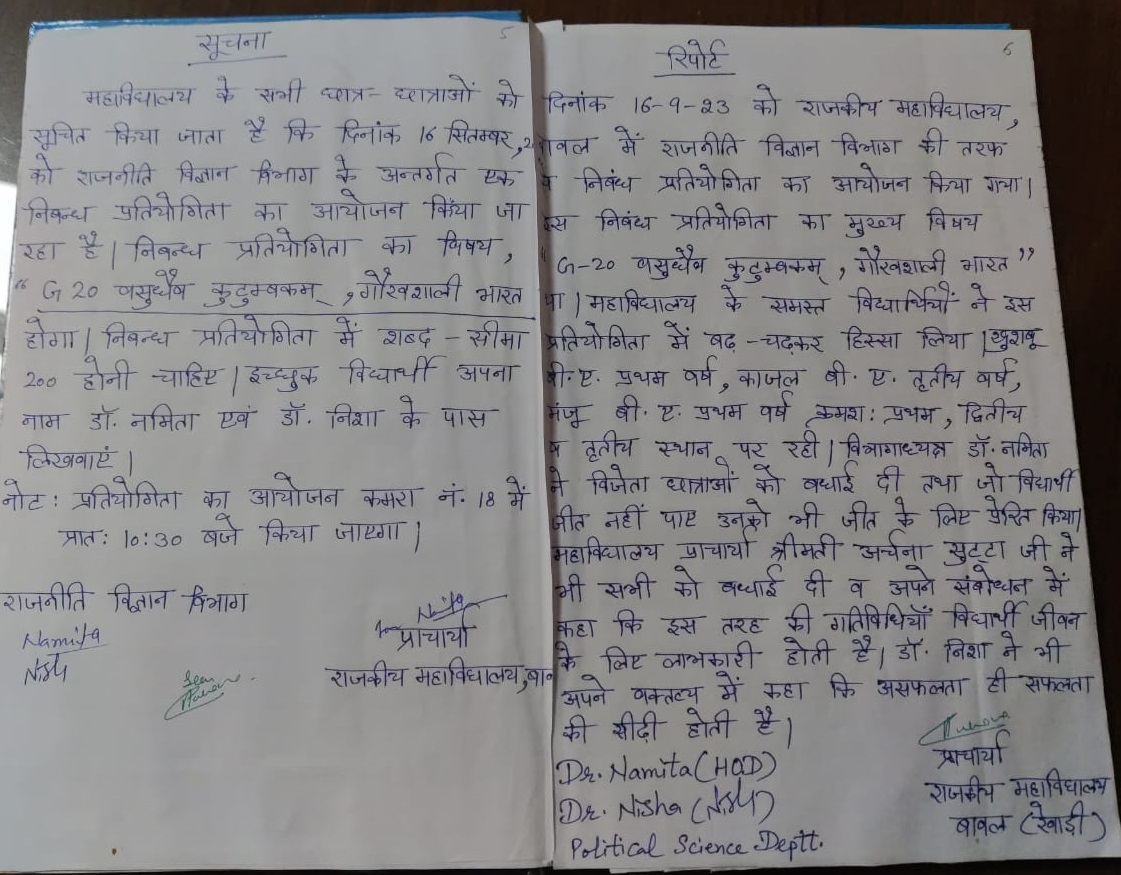 सूचना
5
महाविद्यालय के सभी छात्र-छात्राओं को
सूचित किया जाता है कि दिनांक 16 सितम्बर, 2
को राजनीति विज्ञान विभाग के अन्तर्गत एक
निबन्ध प्रतियोगिता का आयोजन किया जा
रहा है। निबन्ध प्रतियोगिता का विषय,
“ G 20 वसुधैव कुटुम्बकम् , गौरवशाली भारत
होगा। निबन्ध प्रतियोगिता में शब्द - सीमा
200 होनी चाहिए। इच्छुक विद्यार्थी अपना
नाम डॉ. नमिता एवं डॉ. निशा के पास
लिखवाएं।
नोट : प्रतियोगिता का आयोजन कमरा नं. 18 में
प्रात: 10:30 बजे किया जाएगा।
राजनीति विज्ञान विभाग
Namita
प्राचार्या
राजकीय महाविद्यालय, बाव
6
रिपोर्ट
दिनांक 16-9-23 को राजकीय महाविद्यालय,
बावल में राजनीति विज्ञान विभाग की तरफ
निबंध प्रतियोगिता का आयोजन किया गया।
इस निबंध प्रतियोगिता का मुख्य विषय
“ G-20 वसुधैव कुटुम्बकम् , गौरवशाली भारत ”
था। महाविद्यालय के समस्त विद्यार्थियों ने इस
प्रतियोगिता में बढ़-चढ़कर हिस्सा लिया। खुशबू
बी. ए. प्रथम वर्ष, काजल बी. ए. तृतीय वर्ष,
मंजू बी. ए. प्रथम वर्ष क्रमश: प्रथम, द्वितीय
व तृतीय स्थान पर रही। विभागाध्यक्ष डॉ. नमिता
ने विजेता छात्राओं को बधाई दी तथा जो विद्यार्थी
जीत नहीं पाए उनको भी जीत के लिए प्रेरित किया।
महाविद्यालय प्राचार्या श्रीमती अर्चना सुट्टा जी ने
भी सभी को बधाई दी व अपने संबोधन में
कहा कि इस तरह की गतिविधियाँ विद्यार्थी जीवन
के लिए लाभकारी होती है। डॉ. निशा ने भी
अपने वक्तव्य में कहा कि असफलता ही सफलता
की सीढ़ी होती है।
Dr. Namita (HOD)
Dr. Nisha
Political Science Deptt.
प्राचार्या
राजकीय महाविद्यालय
बावल (रेवाड़ी)